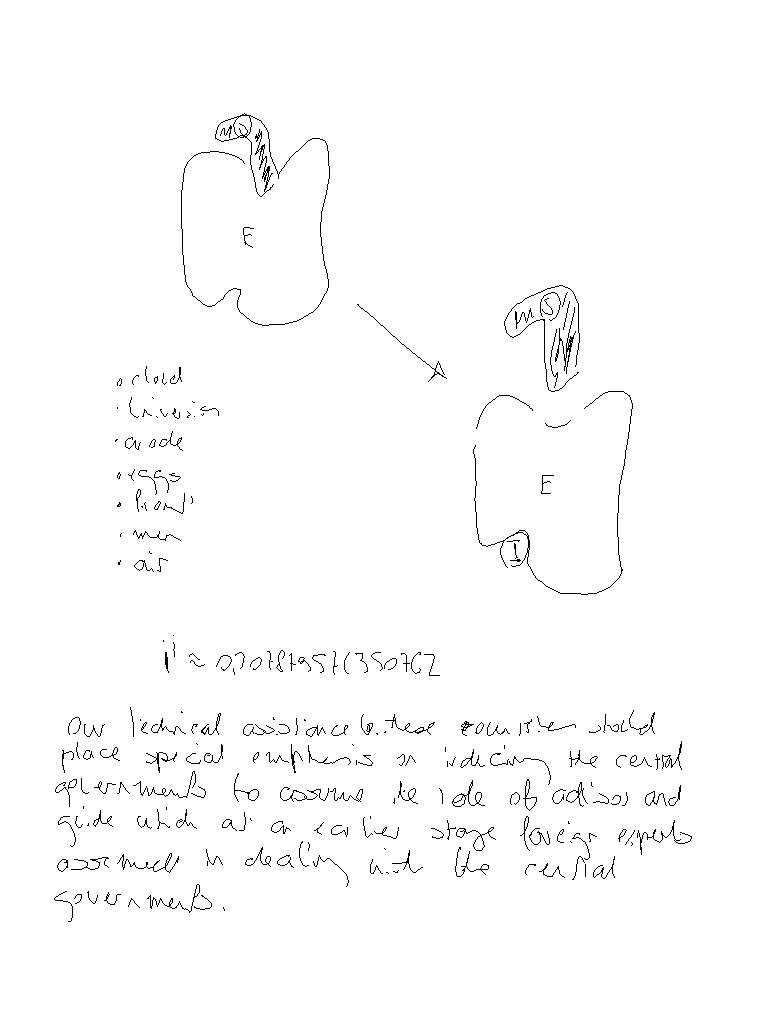 M S
E
M S
E
I
• cloud
• anode
• eggs
• men
• air
iⁱ ≈ 0,207879576350762
Our technical assistance to these countries should
place special emphasis on inducing the central
governments to assume the role of advisor and
guide which at an earlier stage foreign experts
assumed in dealing with the central
governments.